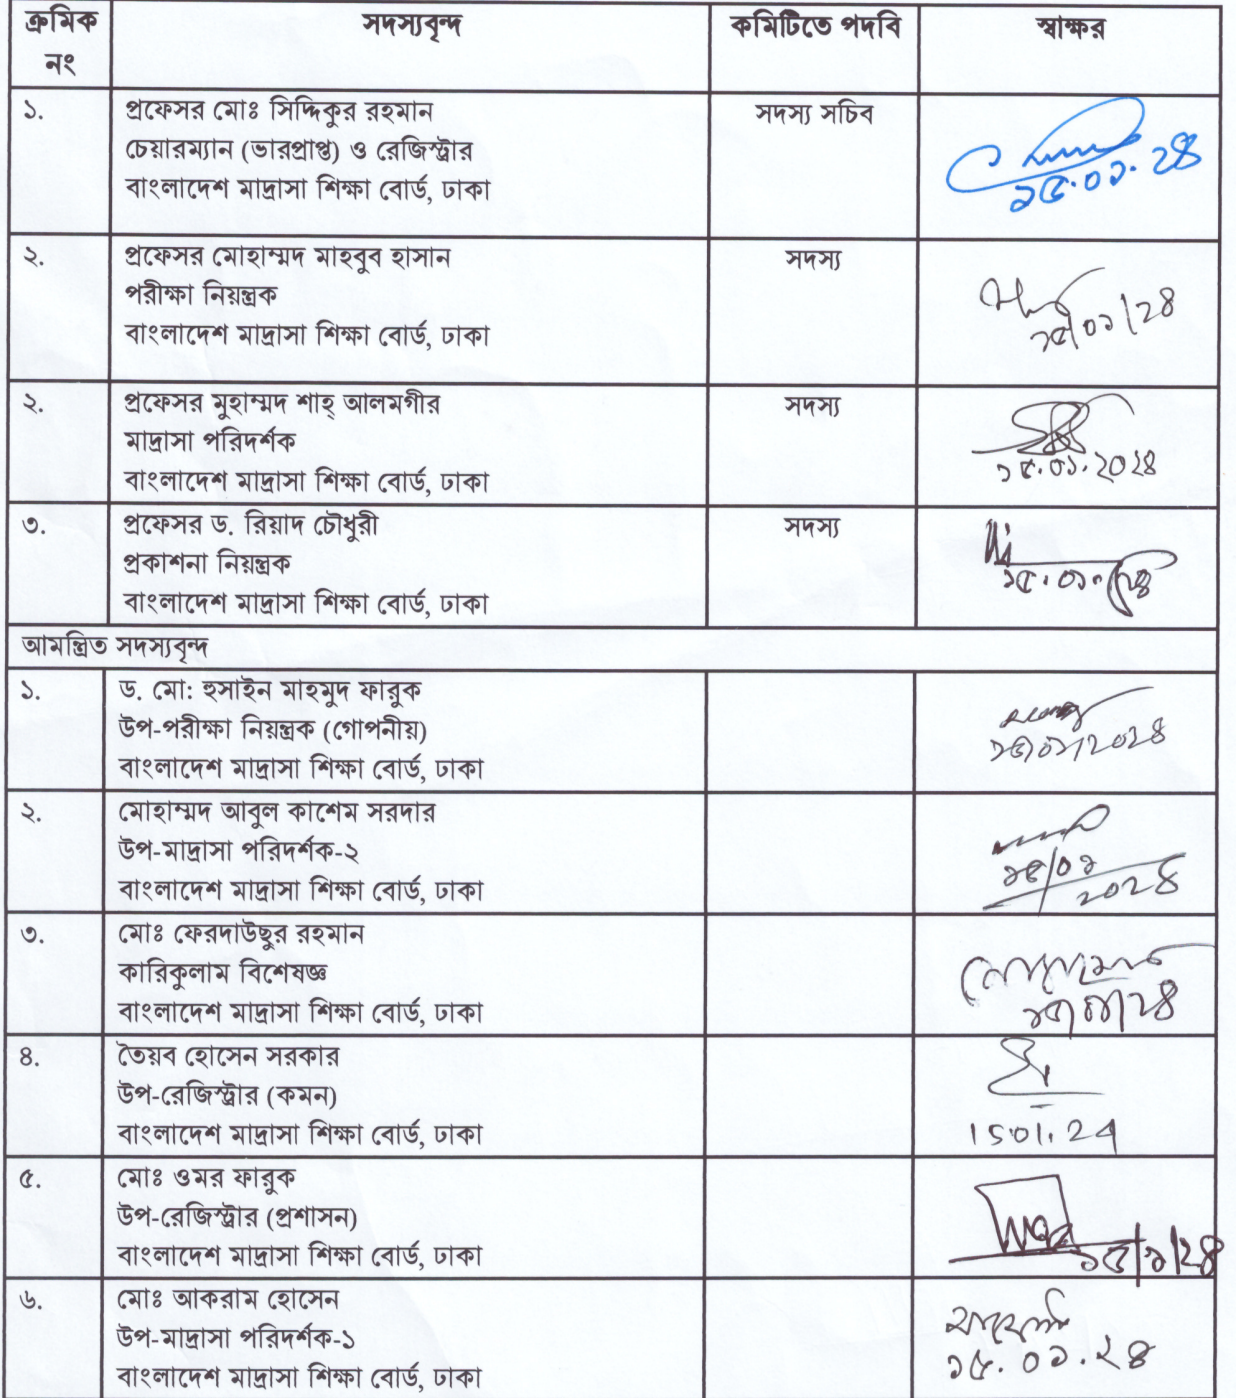 ক্রমিক নং সদস্যবৃন্দ কমিটিতে পদবি স্বাক্ষর
১. প্রফেসর মোঃ সিদ্দিকুর রহমান সদস্য সচিব
চেয়ারম্যান (ভারপ্রাপ্ত) ও রেজিস্ট্রার
বাংলাদেশ মাদ্রাসা শিক্ষা বোর্ড, ঢাকা
১৫.০১.২৪
২. প্রফেসর মোহাম্মদ মাহবুব হাসান সদস্য
পরীক্ষা নিয়ন্ত্রক
বাংলাদেশ মাদ্রাসা শিক্ষা বোর্ড, ঢাকা
১৫/০১/২৪
২. প্রফেসর মুহাম্মদ শাহ্ আলমগীর সদস্য
মাদ্রাসা পরিদর্শক
বাংলাদেশ মাদ্রাসা শিক্ষা বোর্ড, ঢাকা
১৫.০১.২০২৪
৩. প্রফেসর ড. রিয়াদ চৌধুরী সদস্য
প্রকাশনা নিয়ন্ত্রক
বাংলাদেশ মাদ্রাসা শিক্ষা বোর্ড, ঢাকা
১৫.০১.২৪
আমন্ত্রিত সদস্যবৃন্দ
১. ড. মো: হুসাইন মাহমুদ ফারুক
উপ-পরীক্ষা নিয়ন্ত্রক (গোপনীয়)
বাংলাদেশ মাদ্রাসা শিক্ষা বোর্ড, ঢাকা
১৫/০১/২০২৪
২. মোহাম্মদ আবুল কাশেম সরদার
উপ-মাদ্রাসা পরিদর্শক-২
বাংলাদেশ মাদ্রাসা শিক্ষা বোর্ড, ঢাকা
১৫/০১
২০২৪
৩. মোঃ ফেরদাউছুর রহমান
কারিকুলাম বিশেষজ্ঞ
বাংলাদেশ মাদ্রাসা শিক্ষা বোর্ড, ঢাকা
১৫/০১/২৪
৪. তৈয়ব হোসেন সরকার
উপ-রেজিস্ট্রার (কমন)
বাংলাদেশ মাদ্রাসা শিক্ষা বোর্ড, ঢাকা
15.01.24
৫. মোঃ ওমর ফারুক
উপ-রেজিস্ট্রার (প্রশাসন)
বাংলাদেশ মাদ্রাসা শিক্ষা বোর্ড, ঢাকা
১৫/১/২৪
৬. মোঃ আকরাম হোসেন
উপ-মাদ্রাসা পরিদর্শক-১
বাংলাদেশ মাদ্রাসা শিক্ষা বোর্ড, ঢাকা
১৫.০১.২৪